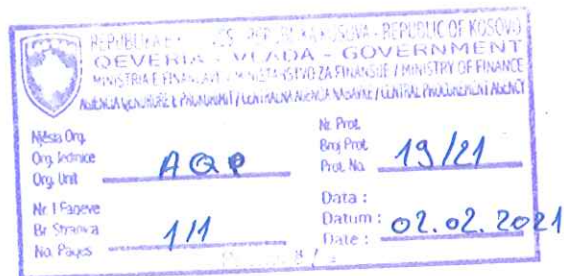 REPUBLIKA E KOSOVËS - REPUBLIKA KOSOVA - REPUBLIC OF KOSOVO
QEVERIA - VLADA - GOVERNMENT
MINISTRIA E FINANCAVE / MINISTARSTVO ZA FINANSIJE / MINISTRY OF FINANCE
AGJENCIA QENDRORE E PROKURIMIT / CENTRALNA AGENCIJA NABAVKE / CENTRAL PROCUREMENT AGENCY
Njësia Org.
Org. Jedinice
Org. Unit
AQP
Nr. Prot.
Broj Prot.
Prot. No.
19/21
Nr. I Faqeve
Br. Stranica
No. Pages
1/1
Data :
Datum :
Date :
02.02.2021